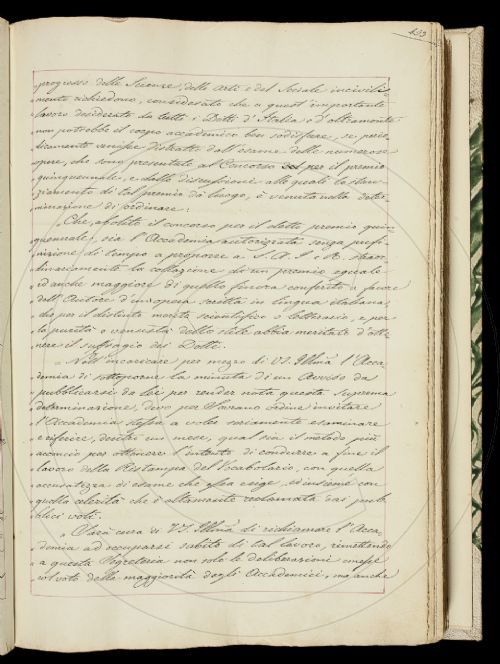 433
„progressi delle Scienze, delle arti e del Sociale incivili=
„mento richiedono, considerato che a quest'importante
„lavoro desiderato da tutti i Dotti d'Italia e d'oltramonte
„non potrebbe il corpo accademico ben sodisfare, se perio=
„dicamente venisse distratto dall'esame delle numerose
„opere, che sono presentate al Concorso per il premio
„quinquennale, e dalle discussioni alle quali lo stan=
„ziamento di tal premio dà luogo, è venuta nella deter=
„minazione di ordinare:
„Che, abolito il concorso per il detto premio quin=
„quennale, sia l'Accademia autorizzata senza prefi=
„nizione di tempo a proporre a S. A. I. e R. straor=
„dinariamente la collazione di un premio eguale
„ed anche maggiore di quello finora conferito a favore
„dell'Autore d'un'opera scritta in lingua italiana,
„che per il distinto merito scientifico o letterario, e per
„la purità e venustà dello stile abbia meritato d'otte=
„nere il suffragio dei Dotti.
„Nell'incaricare per mezzo di VS. Illma l'Acca=
„demia di sottoporre la minuta di un Avviso da
„pubblicarsi da lei per render nota questa Suprema
„determinazione, devo per Sovrano ordine invitare
„l'Accademia stessa a voler seriamente esaminare
„e riferire, dentro un mese, qual sia il metodo più
„acconcio per ottenere l'intento di condurre a fine il
„lavoro della Ristampa del Vocabolario, con quella
„accuratezza di esame che essa esige, ed insieme con
„quella celerità che è altamente reclamata dai pub=
„blici voti.
„Sarà cura di VS. Illma di richiamare l'Acca=
„demia ad occuparsi subito di tal lavoro, rimettendo
„a questa Segreteria non solo le deliberazioni emesse
„col voto della maggiorità degli Accademici, ma anche